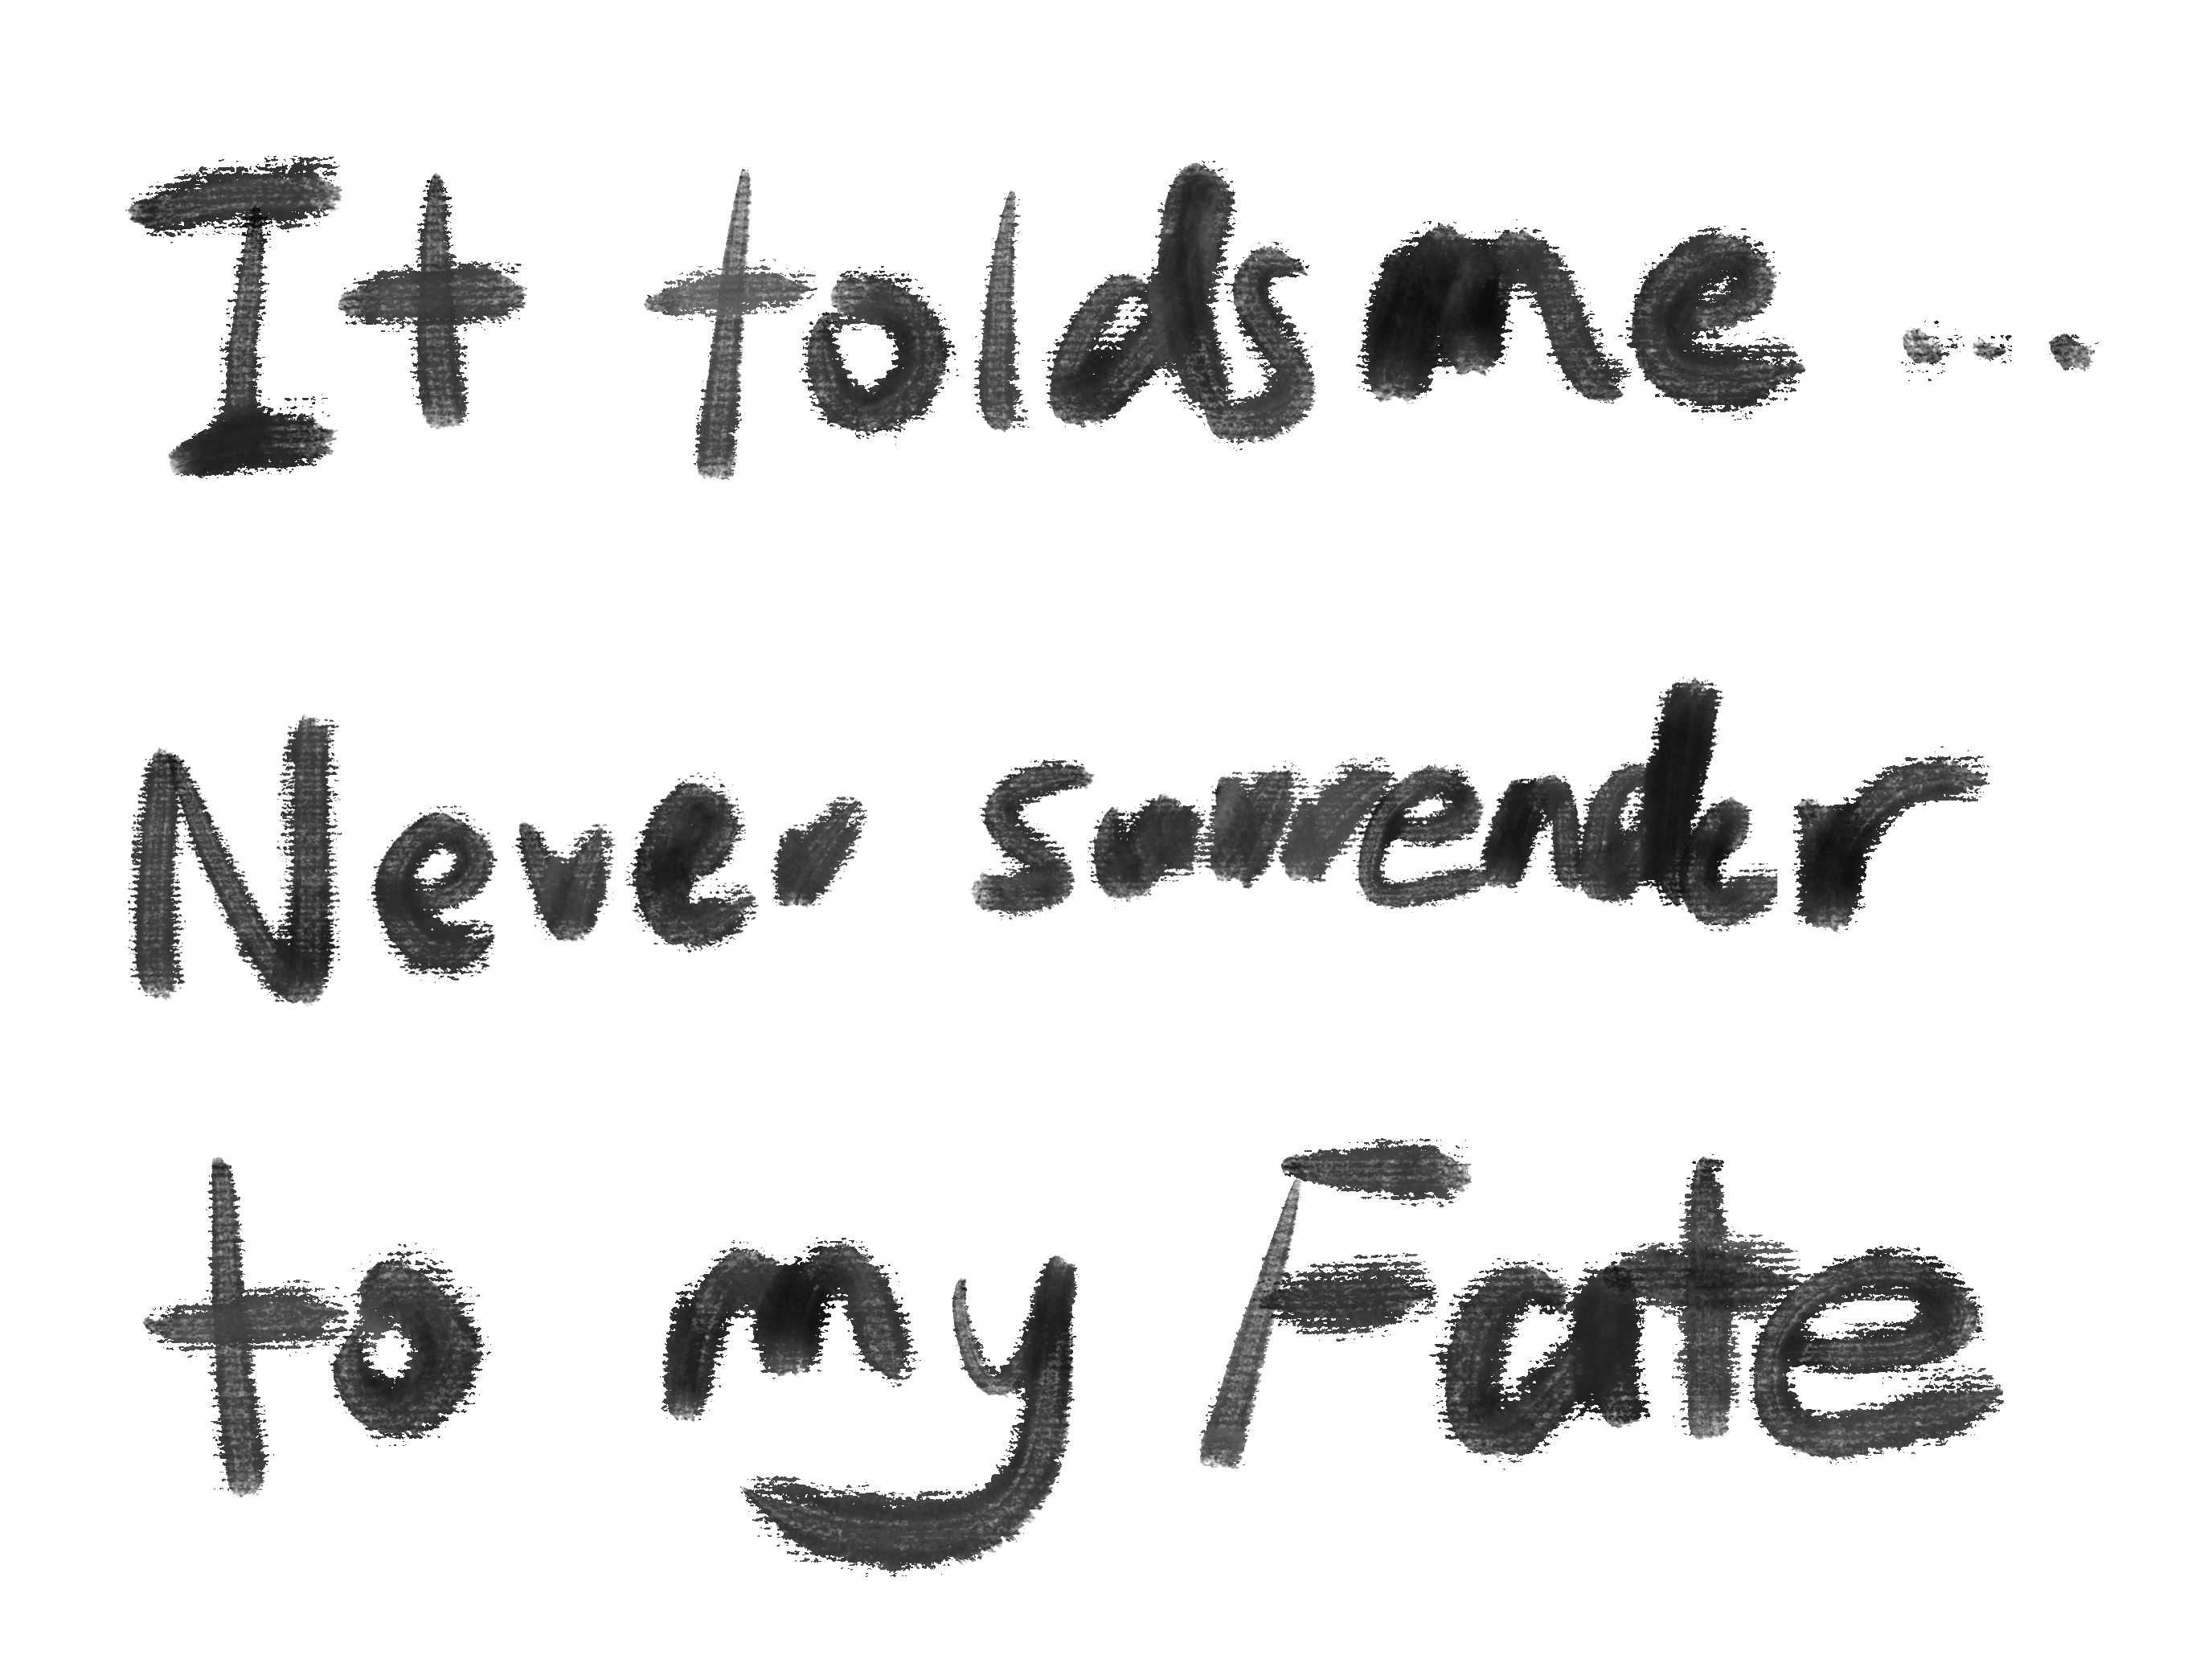 It tolds me ...
Never surrender
to my Fate